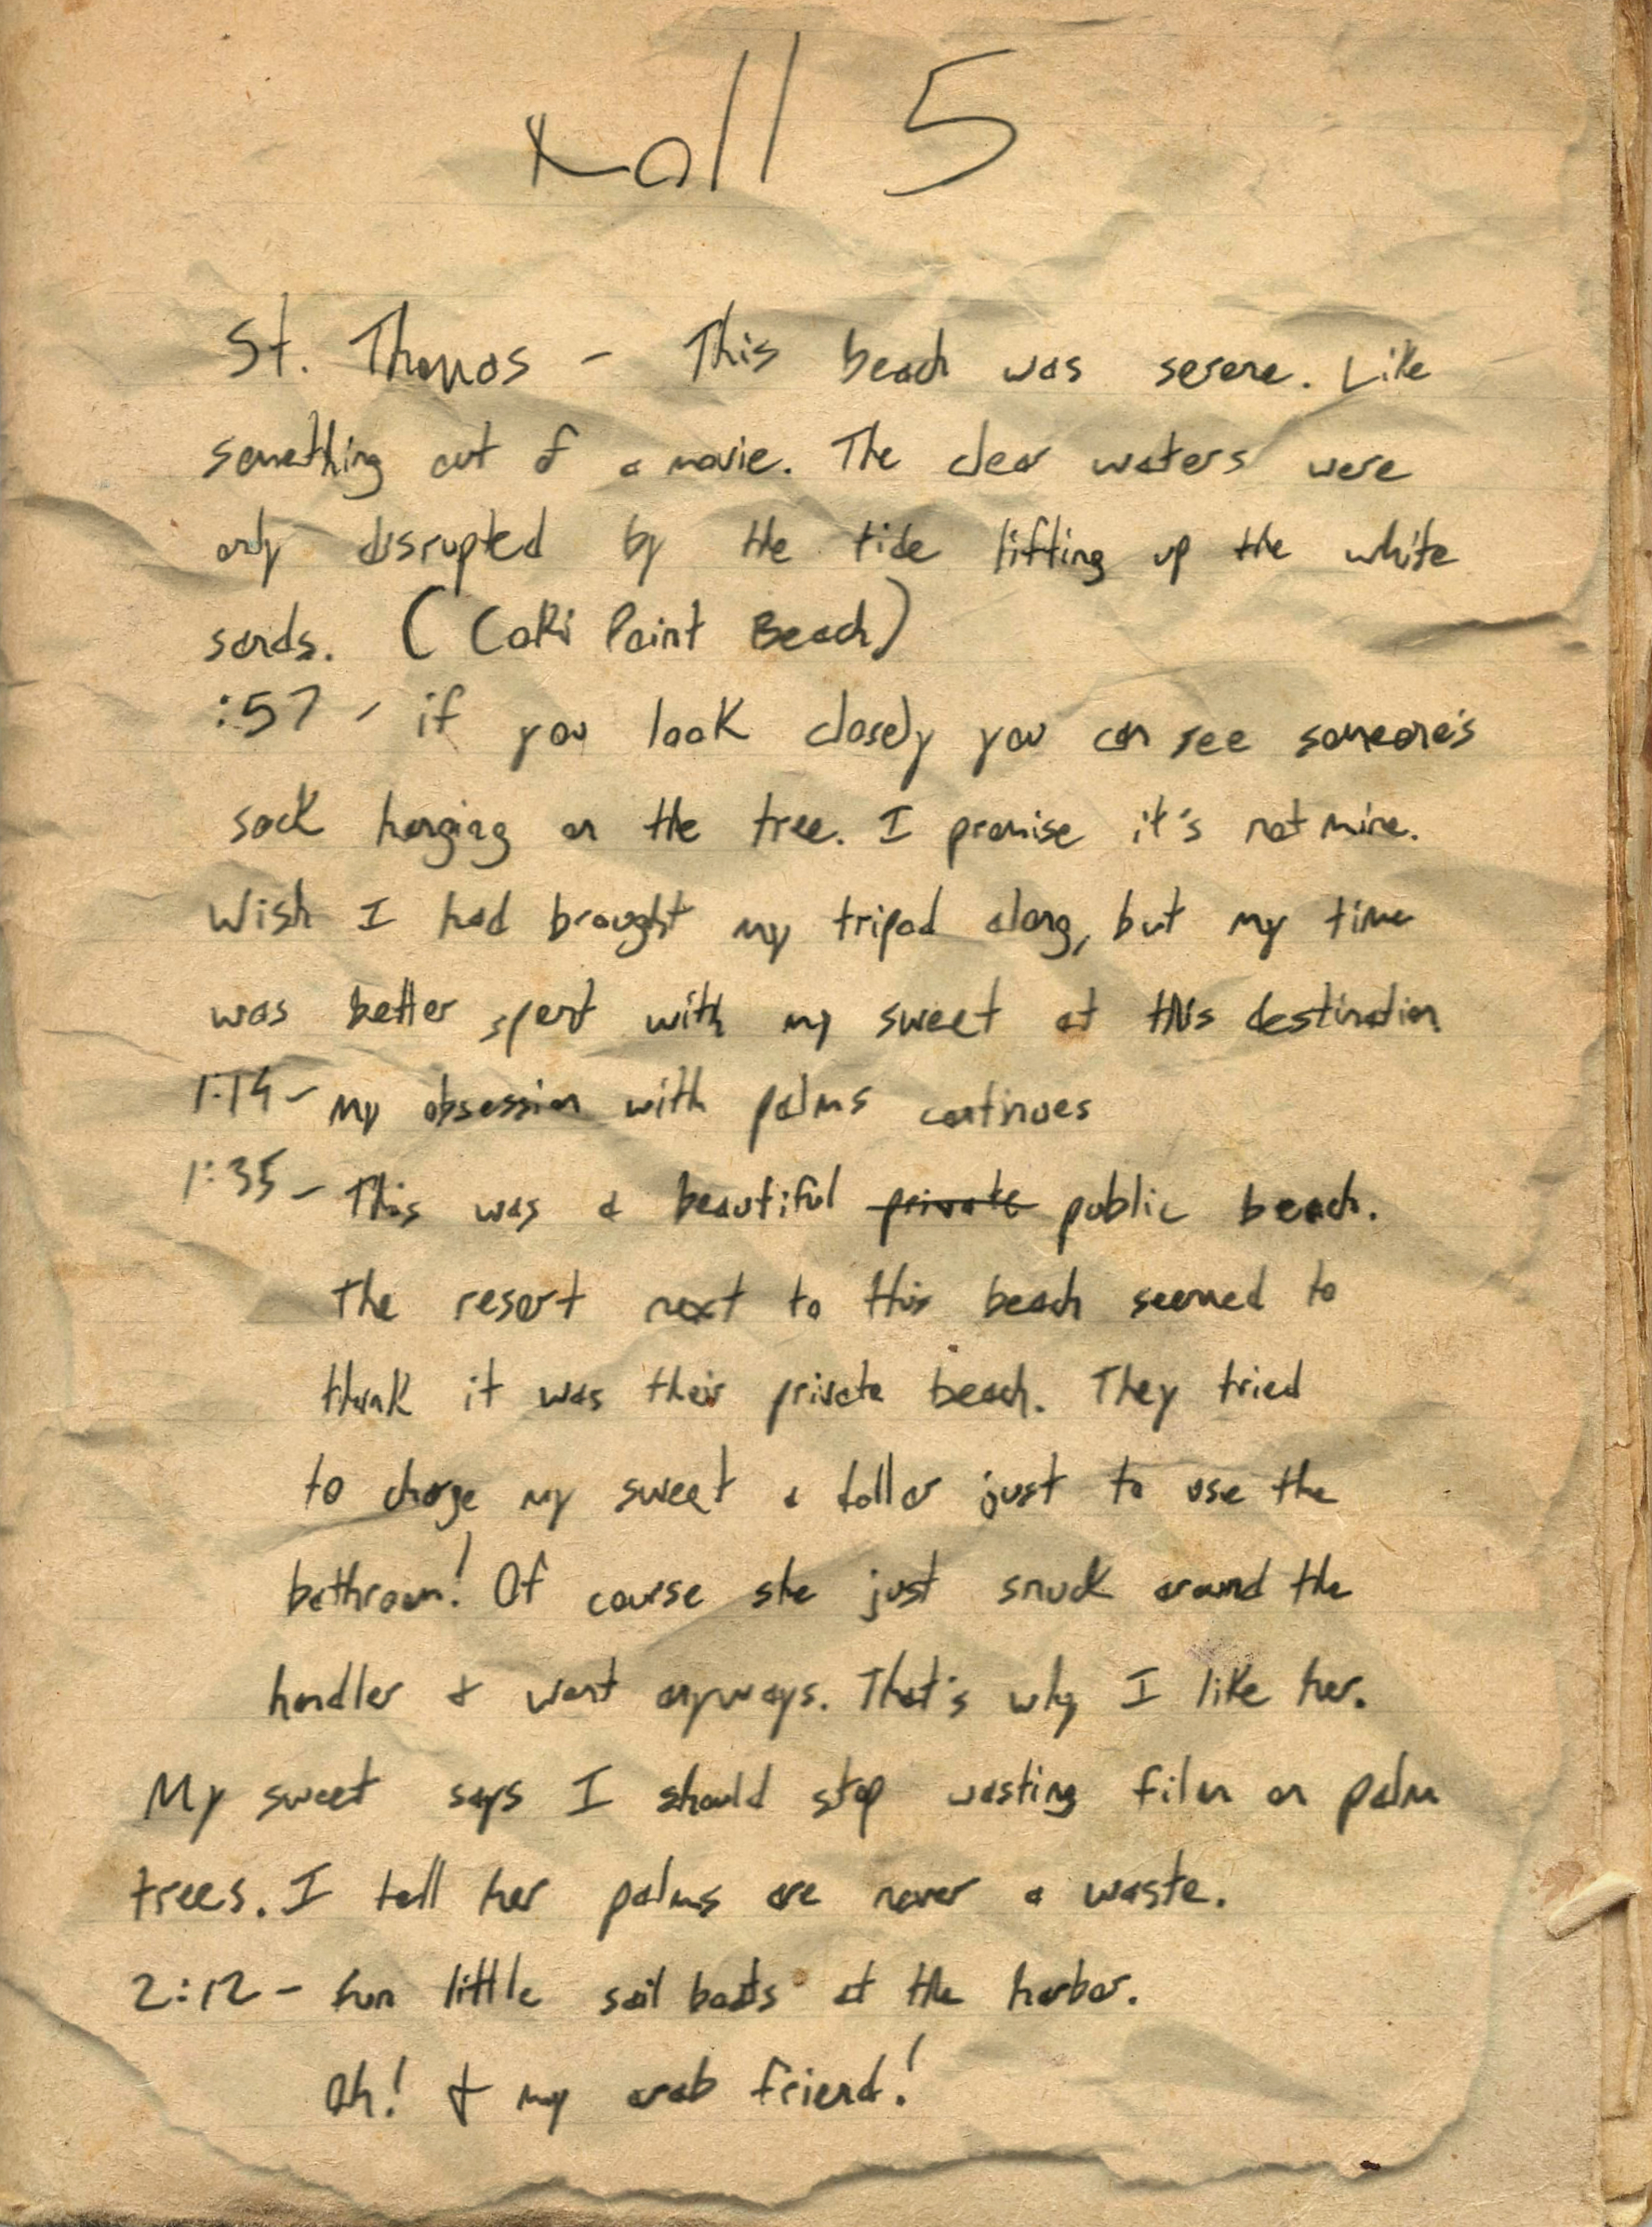 Roll 5
St. Thomas - This beach was serene. Like
something out of a movie. The clear waters were
only disrupted by the tide lifting up the white
sands. (Coki Point Beach)
:57 - if you look closely you can see someone's
sock hanging on the tree. I promise it's not mine.
Wish I had brought my tripod along, but my time
was better spent with my sweet at this destination
1:14 - My obsession with palms continues
1:35 - This was a beautiful private public beach.
The resort next to this beach seemed to
think it was their private beach. They tried
to charge my sweet a dollar just to use the
bathroom! Of course she just snuck around the
handler & went anyways. That's why I like her.
My sweet says I should stop wasting film on palm
trees. I tell her palms are never a waste.
2:12 - fun little sail boats at the harbor.
Oh! & my arab friend!